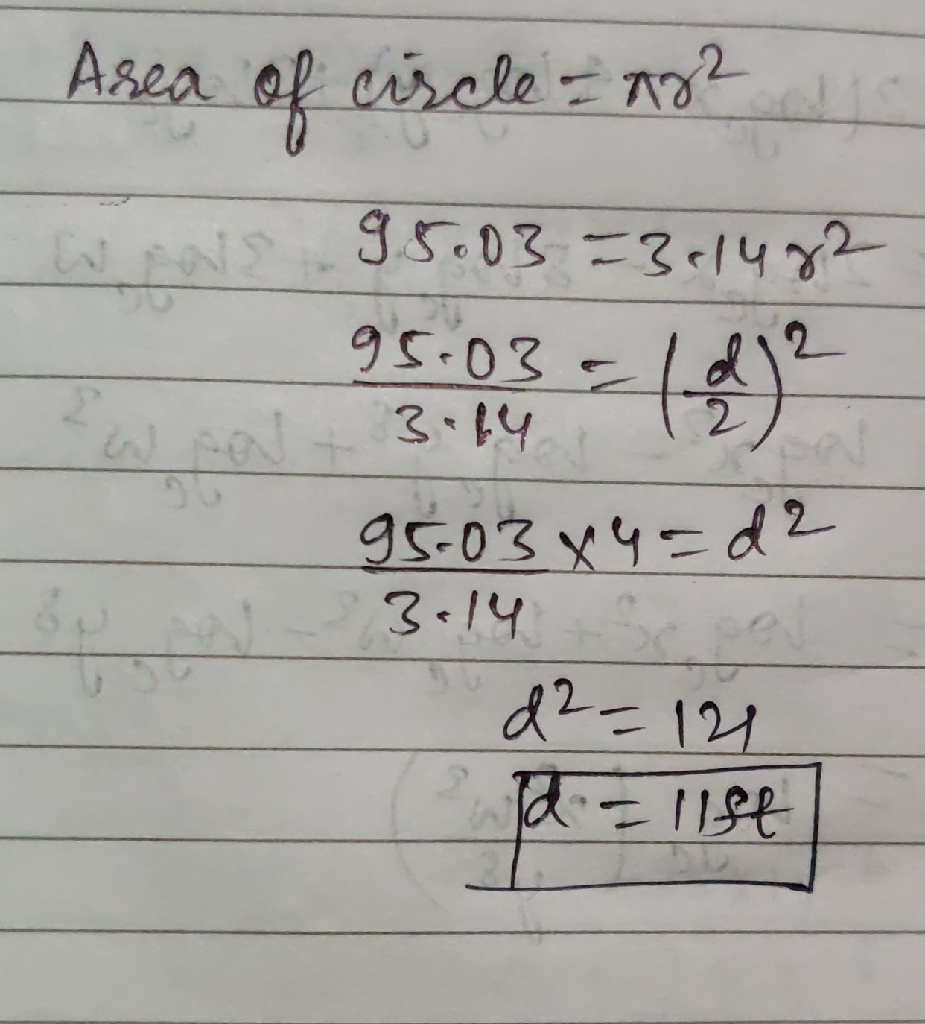 Area of circle = πr²
95.03 = 3.14 r²
95.03/3.14 = (d/2)²
95.03/3.14 × 4 = d²
d² = 121
d = 11ft